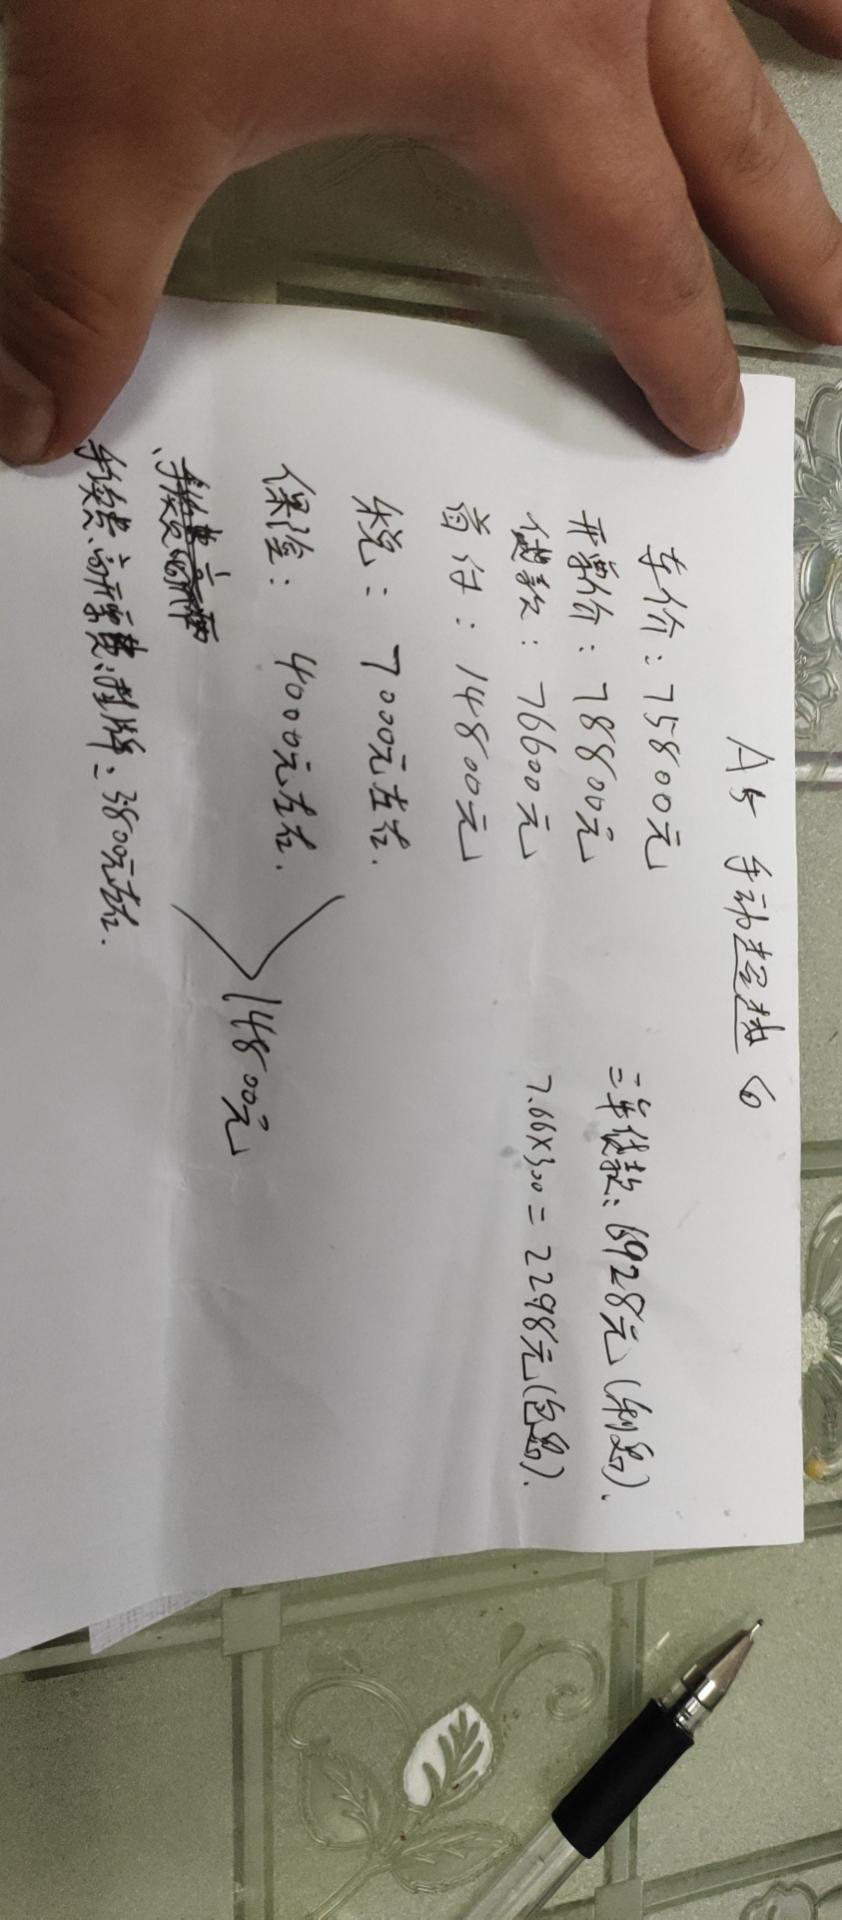 A5 手动超越 6
车价：75800元
开票价：78800元
贷款：76600元
首付：14800元
税：7000元左右.
保险：4000元左右.
手续费、高开票费、挂牌：3800元左右.
14800元
三年贷款：6928元（利息）.
7.66×300=2298元（包息）.